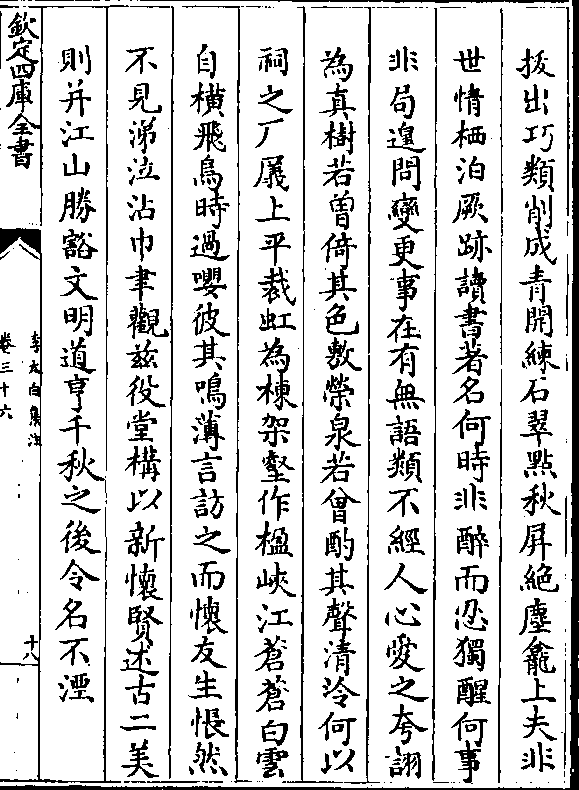 拔出巧類削成青開練石翠點秋屏絶塵龕上夫非
世情栖泊厥跡讀書著名何時非醉而忍獨醒何事
非局遑問變更事在有無語類不經人心愛之夸詡
為真樹若曽倚其色敷榮泉若曾酌其聲清泠何以
祠之厂㕒上平裁虹為棟架壑作楹峽江蒼蒼白雲
自横飛鳥時過嚶彼其鳴薄言訪之而懷友生悵然
不見涕泣沾巾聿觀兹役堂構以新懐賢述古二美
則并江山勝豁文明道亨千秋之後令名不湮
欽定四庫全書
李太白集注
卷三十六
十八